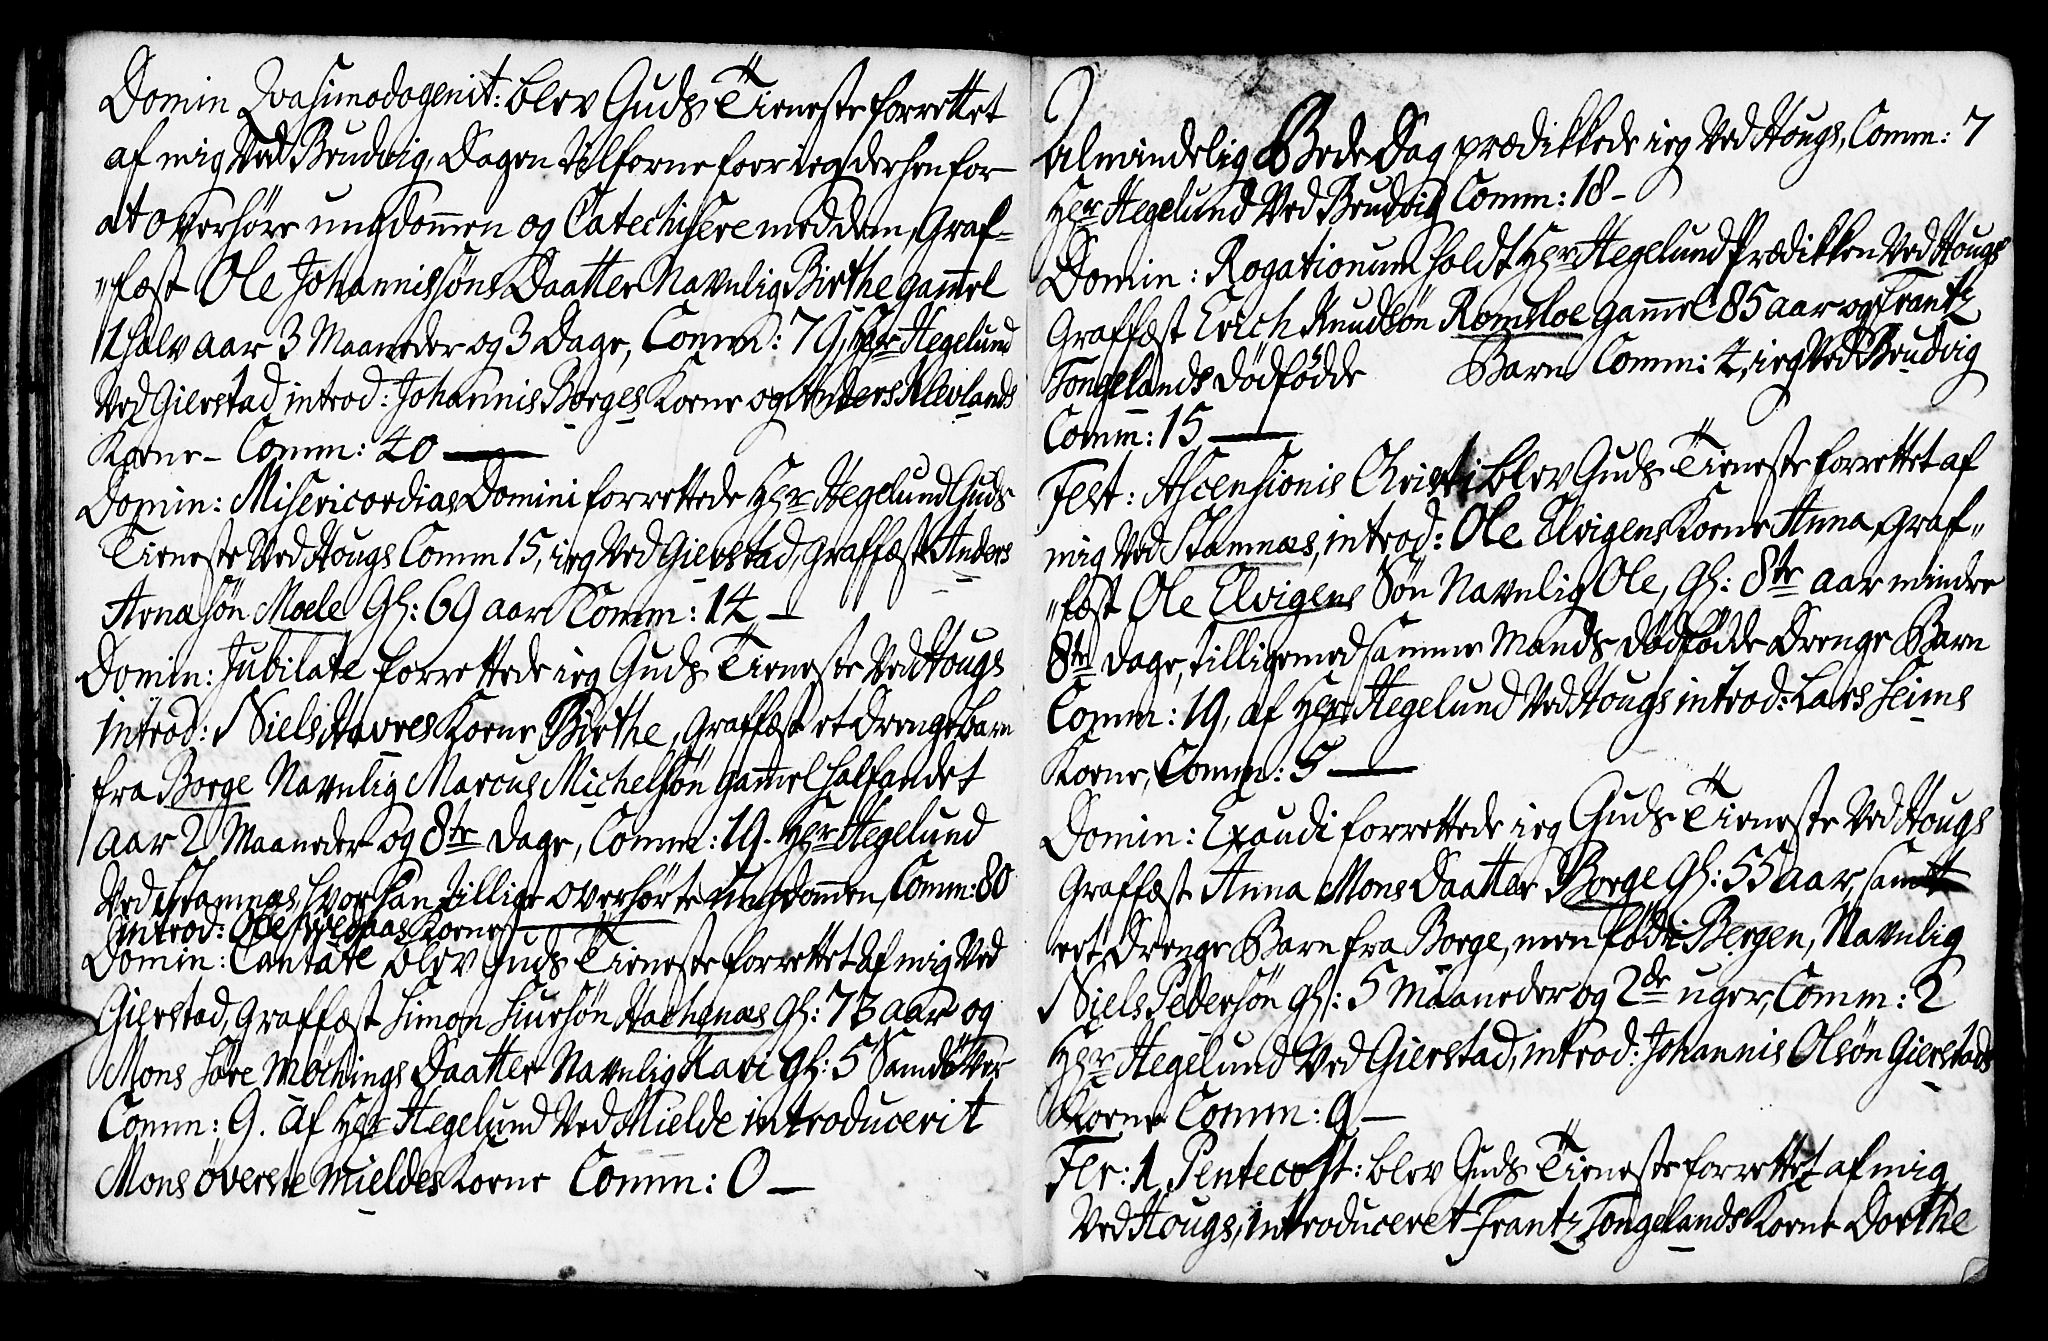 Domin Qvasimodogenit: blev Guds Tieneste forrettet
af mig Ved Brudvig, Dagen tilforne foer ieg derhen for
at overhöre ungdom̄en og Catechisere med dem, Graf-
„fæst Ole Johannissöns Daatter Navnlig Birthe gam̄el
1 halv aar 3 Maaneder og 3 Dage, Comm: 79, Hr Hegelund
Ved Gierstad introd: Johannis Borges Kone og Anders Klevlands
Kone - Comm: 40 —
Domin: Misericordias Domini forrettede Hr Hegelund Guds
Tieneste Ved Hougs Comm 15, ieg Ved Gierstad, Graffæst Anders
Arnasön Moele Gl: 69 aar Comm: 14 —
Domin: Jubilate forrettede ieg Guds Tieneste Ved Hougs
introd: Niels Havres Kone Birthe, Graffæst et drengebarn
fra Borge Navnlig Marcus Michelsön gam̄el halfandet
aar 2 Maaneder og 8te dage, Comm: 19. Hr Hegelund
Ved Stamnæs, hvor han tillige overhörte ungdom̄en, Comm: 80
introd: Ole Kone —
Domin: Cantate blev Guds Tieneste forrettet af mig Ved
Gierstad, Graffæst Simon Siursön Gl: 73 aar og
Mons Söre Möchings Daatter Navnlig Kari Gl: 5
Comm: 9. af Hr Hegelund Ved Mielde introducerit
Mons överste Mieldes Kone Comm: 0 —
Almindelig Bede Dag prædikkede ieg Ved Hougs, Comm: 7
Hr Hegelund Ved Brudvig Comm: 18 -
Domin: Rogationum holdt Hr Hegelund Prædikken Ved Hougs
Graffæst Erich Knudsön Romsloe gam̄el 85 aar og Frantz
Tongelands dödfödde Barn Comm: 4, ieg Ved Brudvig
Comm: 15 —
Fest: Ascensionis Christi blev Guds Tieneste forrettet af
mig Ved Stamnæs, introd: Ole Elvigens Kone Anna, Graf„
„fæst Ole Elvigens Sön Navnlig Ole, Gl: 8te aar mindre
8te dage, tilligemed samme Mands dödfödde Drenge Barn
Comm: 19, af Hr Hegelund Ved Hougs introd: Lars Seims
Kone, Comm: 5 —
Domin: Exaudi forrettede ieg Guds Tieneste Ved Hougs
Graffæst Anna Mons Daatter Borge Gl: 55 aar, samt
eet Drenge Barn fra Borge, men född i Bergen, Navnlig
Niels Pedersön Gl: 5 Maaneder og 2de uger, Comm: 2
Hr Hegelund Ved Gierstad, introd: Johannis Olsön Gierstads
Kone Comm: 9 —
Fer: 1 Pentecost: blev Guds Tieneste forrettet af mig
Ved Hougs, introduceret Frantz Tongelands Kone Dorthe